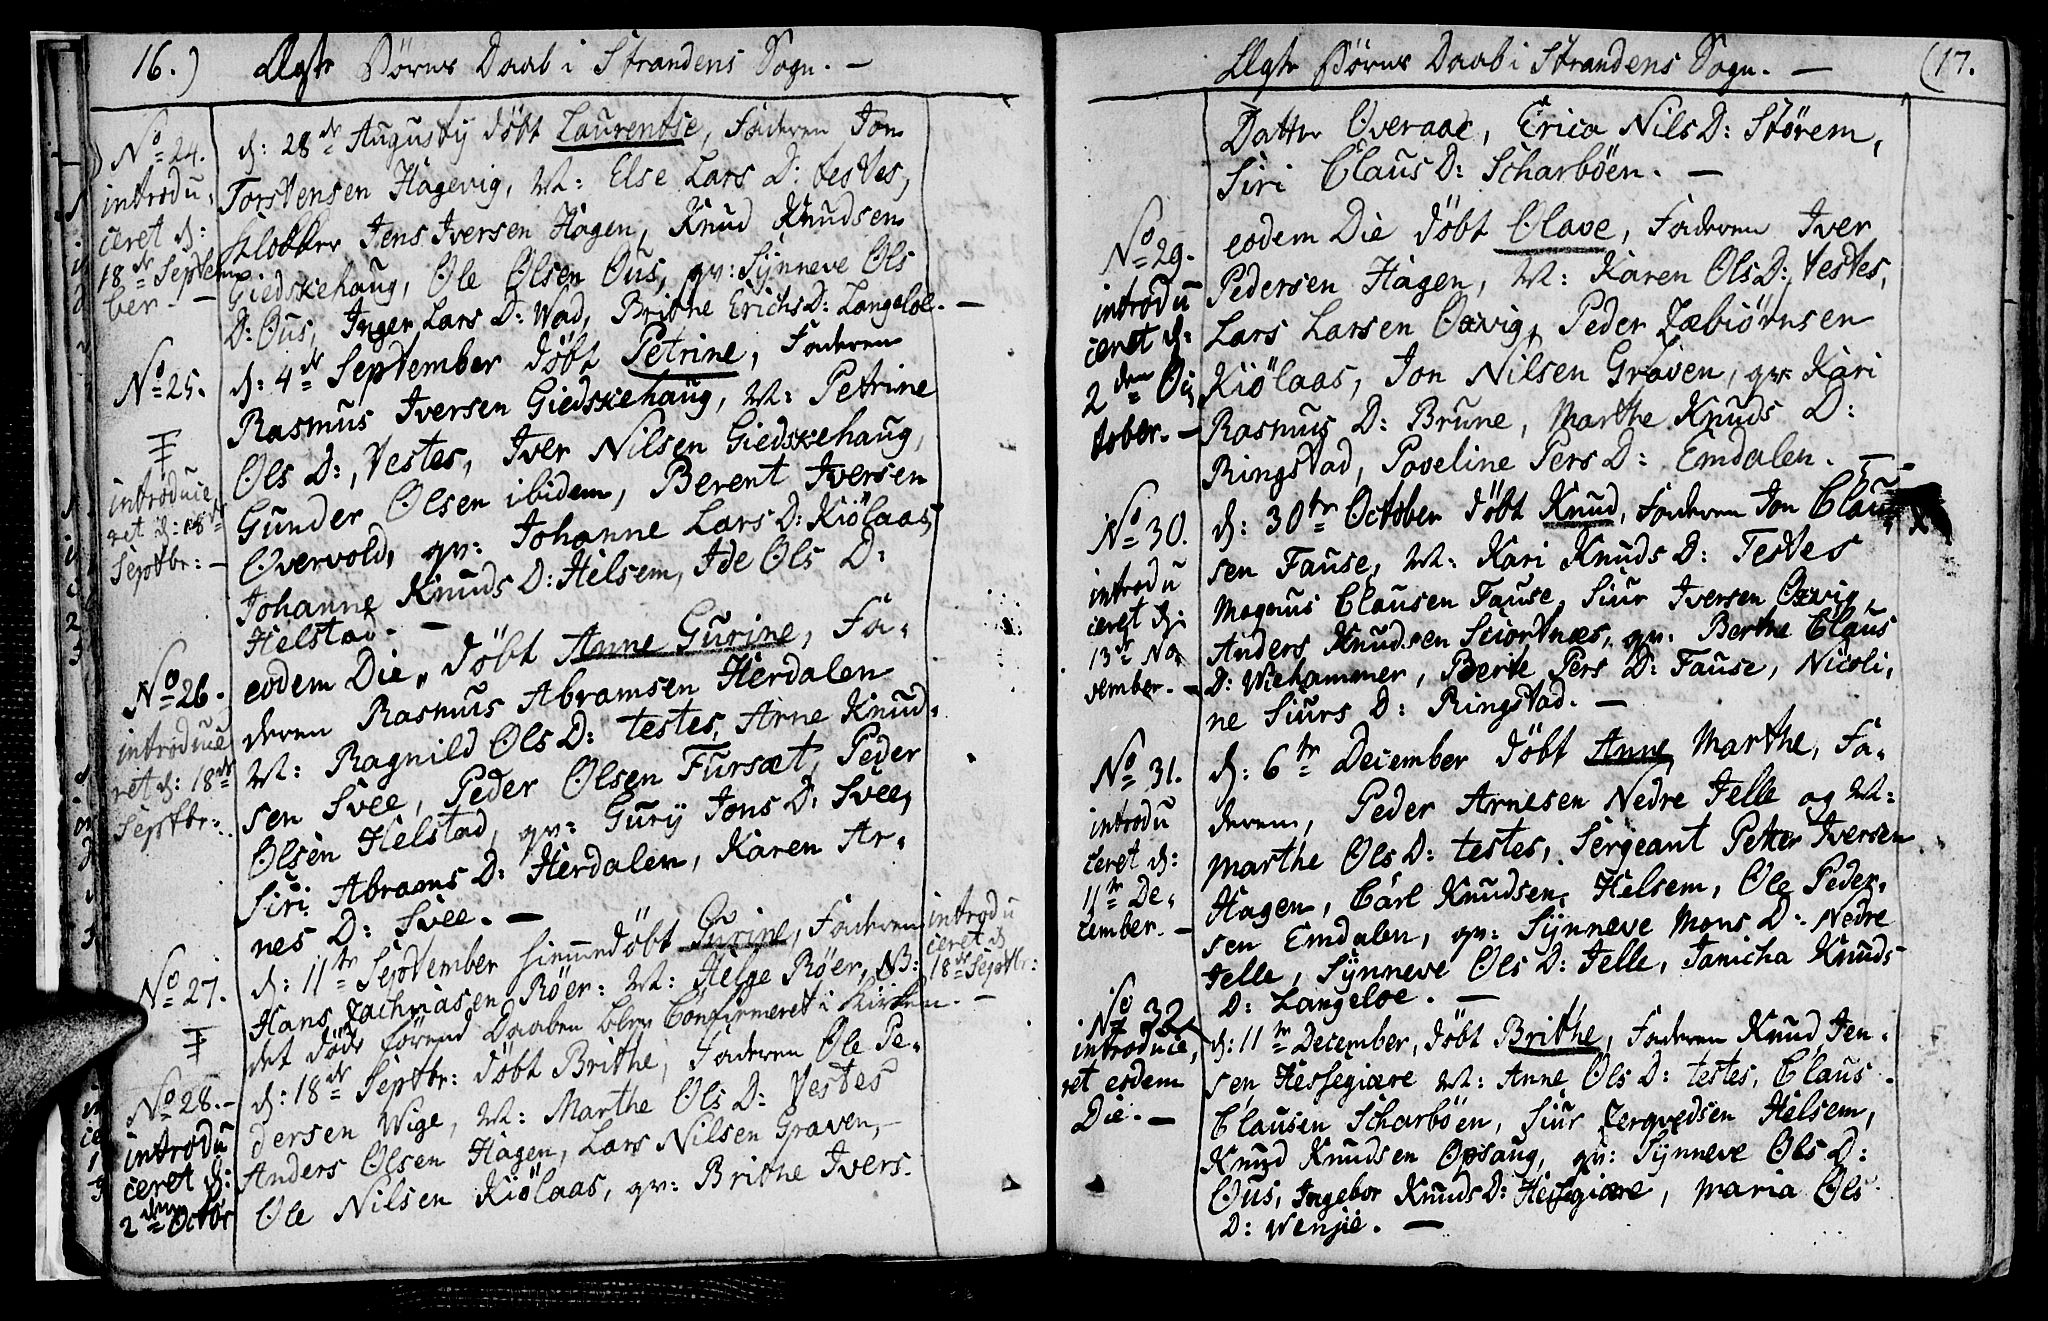 16.) Ægte Börns Daab i Strandens Sogn. —
No 24.
introdu,
ceret d:
18de Septem
ber. —
d: 28de Augusty döbt Laurentse, Faderen Jon
Torstensen Hagevig, M: Else Lars D: testes,
Klokker Jens Iversen Hagen, Knud Knudsen
Giedskehaug, Ole Olsen Ous, qv: Synneve Ols
D: Ous, Inger Lars D: Wad, Brithe Erichs D: Langeloe. —
No 25.
introduce,
ret d: 18de
Septbr: —
d: 4de September döbt Petrine, Faderen
Rasmus Iversen Giedskehaug, M: Petrine
Ols D:, Testes, Iver Nilsen Giedskehaug,
Gunder Olsen ibidem, Berent Iversen
Overvold, qv: Johanne Lars D: Kiölaas,
Johanne Knuds D: Helsem, Ide Ols D:
Helstad. —
No 26.
introduce
ret d: 18de
Septbr:
eodem Die, döbt Anne Gurine, Fa,
deren Rasmus Abramsen Herdalen
M: Ragnild Ols D: testes, Arne Knud,
sen Svee, Peder Olsen Fursæt, Peder
Olsen Helstad, qv: Gury Jons D: Svee,
Siri Abrams D: Herdalen, Karen Ar,
nes D: Svee. —
No 27.
d: 11te September hiemmedöbt Gurine, Faderen
Hans Zachriasen Röer: M: Helge Röer, NB:
det döde förend Daaben blev Confirmeret i Kirken. —
introdu
ceret d
18de Septbr:
No 28. —
introdu
ceret d:
2den Octbr
d: 18de Septbr: döbt Brithe, Faderen Ole Pe,
dersen Wige, M: Marthe Ols D: Testes
Anders Olsen Hagen, Lars Nilsen Graven,
Ole Nilsen Kiölaas, qv: Brithe Ivers
Ægte Börns Daab i Strandens Sogn. — (17.
Datter Overaae, Erica Nils D: Störem,
Siri Claus D: Scharböen. —
No 29.
introdu
ceret d:
2den Oc,
tober. —
eodem Die döbt Olave, Faderen Iver
Pedersen Hagen, M: Karen Ols D: testes,
Lars Larsen Oxvig, Peder Zæbiörnsen
Kiölaas, Jon Nilsen Graven, qv: Kari
Rasmus D: Brune, Marthe Knuds D:
Ringstad, Poveline Pers D: Emdalen. —
No 30.
introdu
ceret d:
13de No,
vember. —
d: 30te October döbt Knud, Faderen Jon Clau
sen Fause, M: Kari Knuds D: Testes
Magnus Clausen Fause, Siur Iversen Oxvig,
Anders Knudsen Sciortnæs, qv: Berthe Claus
D: Wiehammer, Berte Pers D: Fause, Nicoli,
ne Siurs D: Ringstad. —
No 31.
introdu
ceret d:
11te De,
cember. —
d: 6te December döbt Anne Marthe, Fa,
deren, Peder Arnesen Nedre Jelle og M:
Marthe Ols D: testes, Sergeant Petter Iversen
Hagen, Carl Knudsen Helsem, Ole Peder,
sen Emdalen, qv: Synneve Mons D: Nedre
Jelle, Synneve Ols D: Jelle, Janicha Knuds
D: Langeloe. —
No 32
introduce,
ret eodem
Die. —
d: 11te December, döbt Brithe, Faderen Knud Jen,
sen Hessegiære M: Anne Ols D: testes, Claus
Clausen Scharböen, Siur Zergvedsen Helsem,
Knud Knudsen Opsaug, qv: Synneve Ols D:
Ous, Ingebor Knuds D: Hessegiære, Maria Ols
D: Wenjie. —